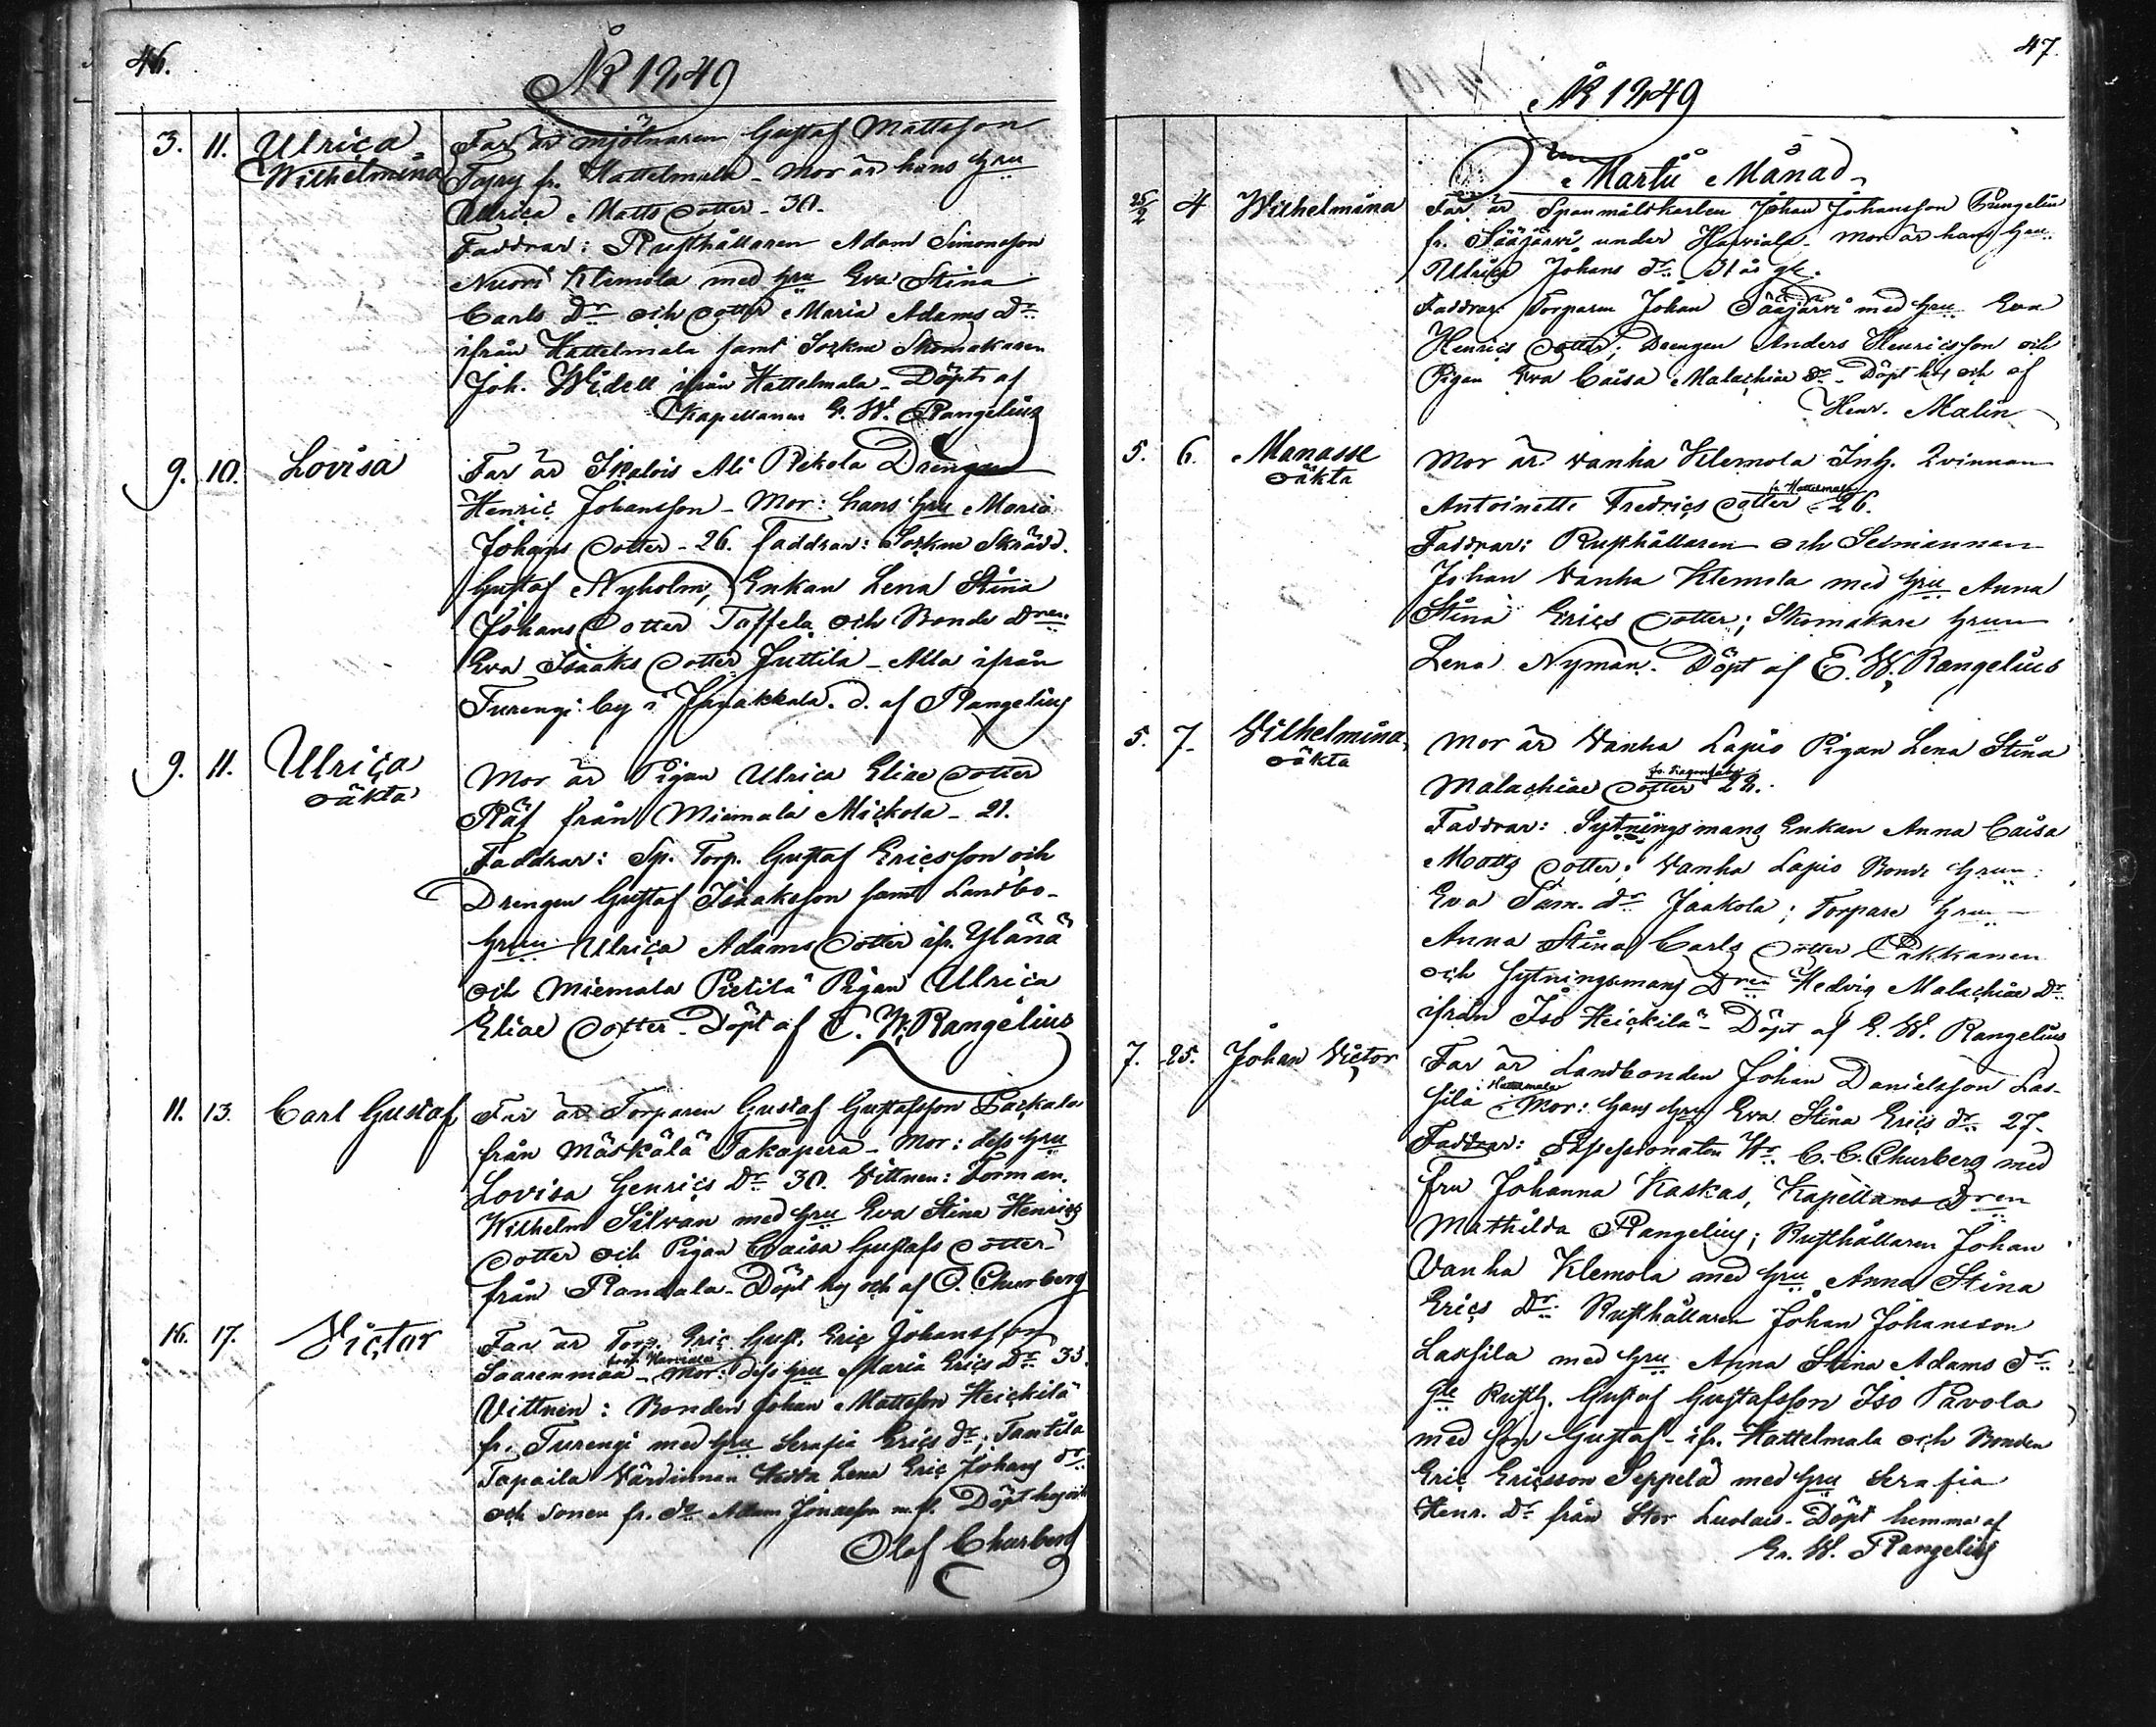 46.
År 1849
3. 11. Ulrica Wilhelmina
Far är mjölnaren Gustaf Mattsson
Tyry fr. Hattelmala - Mor är hans Hru
Ulrica Matts Dotter - 30.
Faddrar: Rusthållaren Adam Simonsson
Nuori Klemola med Hru Eva Stina
Carls Dr och Dotter Maria Adams Dr
ifrån Hattelmala samt Sockne Skomakaren
Joh. Widell ifrån Hattelmala - Döpt af
Kapellanen E. W. Rangelius
9. 10. Lovisa
Far är Ikalois Ali Rekola Drengen
Henric Johansson - Mor: hans Hru Maria
Johans Dotter - 26. Faddrar: Sockne Skrädd.
Gustaf Nyholm, Enkan Lena Stina
Johans Dotter Toffela och Bonde Dren
Eva Isaaks Dotter Juttila - Alla ifrån
Turengi by i Janakkala. d. af Rangelius
9. 11. Ulrica
oäkta
Mor är Pigan Ulrica Eliae Dotter
Räf från Miemala Mickola - 21.
Faddrar: Sp. Torp. Gustaf Ericsson och
Drengen Gustaf Isaaksson samt Landbo-
hrun Ulrica Adams Dotter ifr. Ylänä
och Miemala Pietilä Pigan Ulrica
Eliae Dotter - Döpt af E. W. Rangelius
11. 13. Carl Gustaf
Far är Torparen Gustaf Gustafsson Packala
från Mäskälä Takapera - Mor: dess Hru
Lovisa Henrics Dr 30. Vittnen: Torman.
Wilhelm Silvan med Hru Eva Stina Henrics
Dotter och Pigan Caisa Gustafs Dotter
från Randala - Döpt hos och af O. Churberg
16. 17. Victor
Far är Torp. Eric Gust. Eric Johansson
Saarenmaa - Mor: dess Hru Maria Erics Dr 33.
Vittnen: Bonden Johan Mattsson Heickilä
fr. Turengi med Hru Serafia Erics dr; Tantila
Tapaila Värdinnan Hedda Lena Eric Johans dr
och Sonen fr. do Adam Jonasson m. fl. Döpt hos och
Olof Churberg
47.
År 1849
Martii Månad
25/2 4 Wilhelmina
Far är Spanmålskarlen Johan Johansson
fr. Sääjärvi under Harviala - Mor är hans Hru
Ulrica Johans dr 31 år gl.
Faddrar: Torparen Johan Sääjärvi med Hru Eva
Henrics Dotter; Drengen Anders Henricsson och
Pigan Eva Caisa Malachiae dr - Döpt hos och af
Henr. Malin
5. 6. Manasse
oäkta
Mor är Vanha Klemola Inh. Qvinnan
fr. Hattelmala
Antoinette Fredrics Dotter - 26.
Faddrar: Rusthållaren och Sexmannen
Johan Vanha Klemola med Hru Anna
Stina Erics Dotter; Skomakare Hrun
Lena Nyman. Döpt af E. W. Rangelius
5. 7. Wilhelmina
oäkta
Mor är Vanha Lapio Pigan Lena Stina
Malachiae Dotter 22.
Faddrar: Sytningsmans Enkan Anna Caisa
Matts Dotter; Vanha Lapio Bonde Hrun
Eva Sam. dr Jaakola; Torpare Hrun
Anna Stina Carls Dotter Päkkanen
och Sytningsmans Dren Hedvig Malachiae Dr
ifrån Iso Heickilä - Döpt af E. W. Rangelius
7. 25. Johan Victor
Far är Landbonden Johan Danielsson Las-
i Hattelmala
sila Mor: hans Hru Eva Stina Erics dr 27.
Faddrar: Possessionaten Hr C. C. Churberg med
fru Johanna Kaskas, Kapellans Dren
Mathilda Rangelius; Rusthållaren Johan
Vanha Klemola med Hru Anna Stina
Erics Dr Rusthållaren Johan Johansson
Lassila med Hru Anna Stina Adams dr
Gle Rusth. Gustaf Gustafsson Iso Pavola
med son Gustaf - ifr. Hattelmala och Bonden
Eric Ericsson Seppelä med Hru Serafia
Henr. Dr från Stor Luolais - Döpt hemma af
Er. W. Rangelius